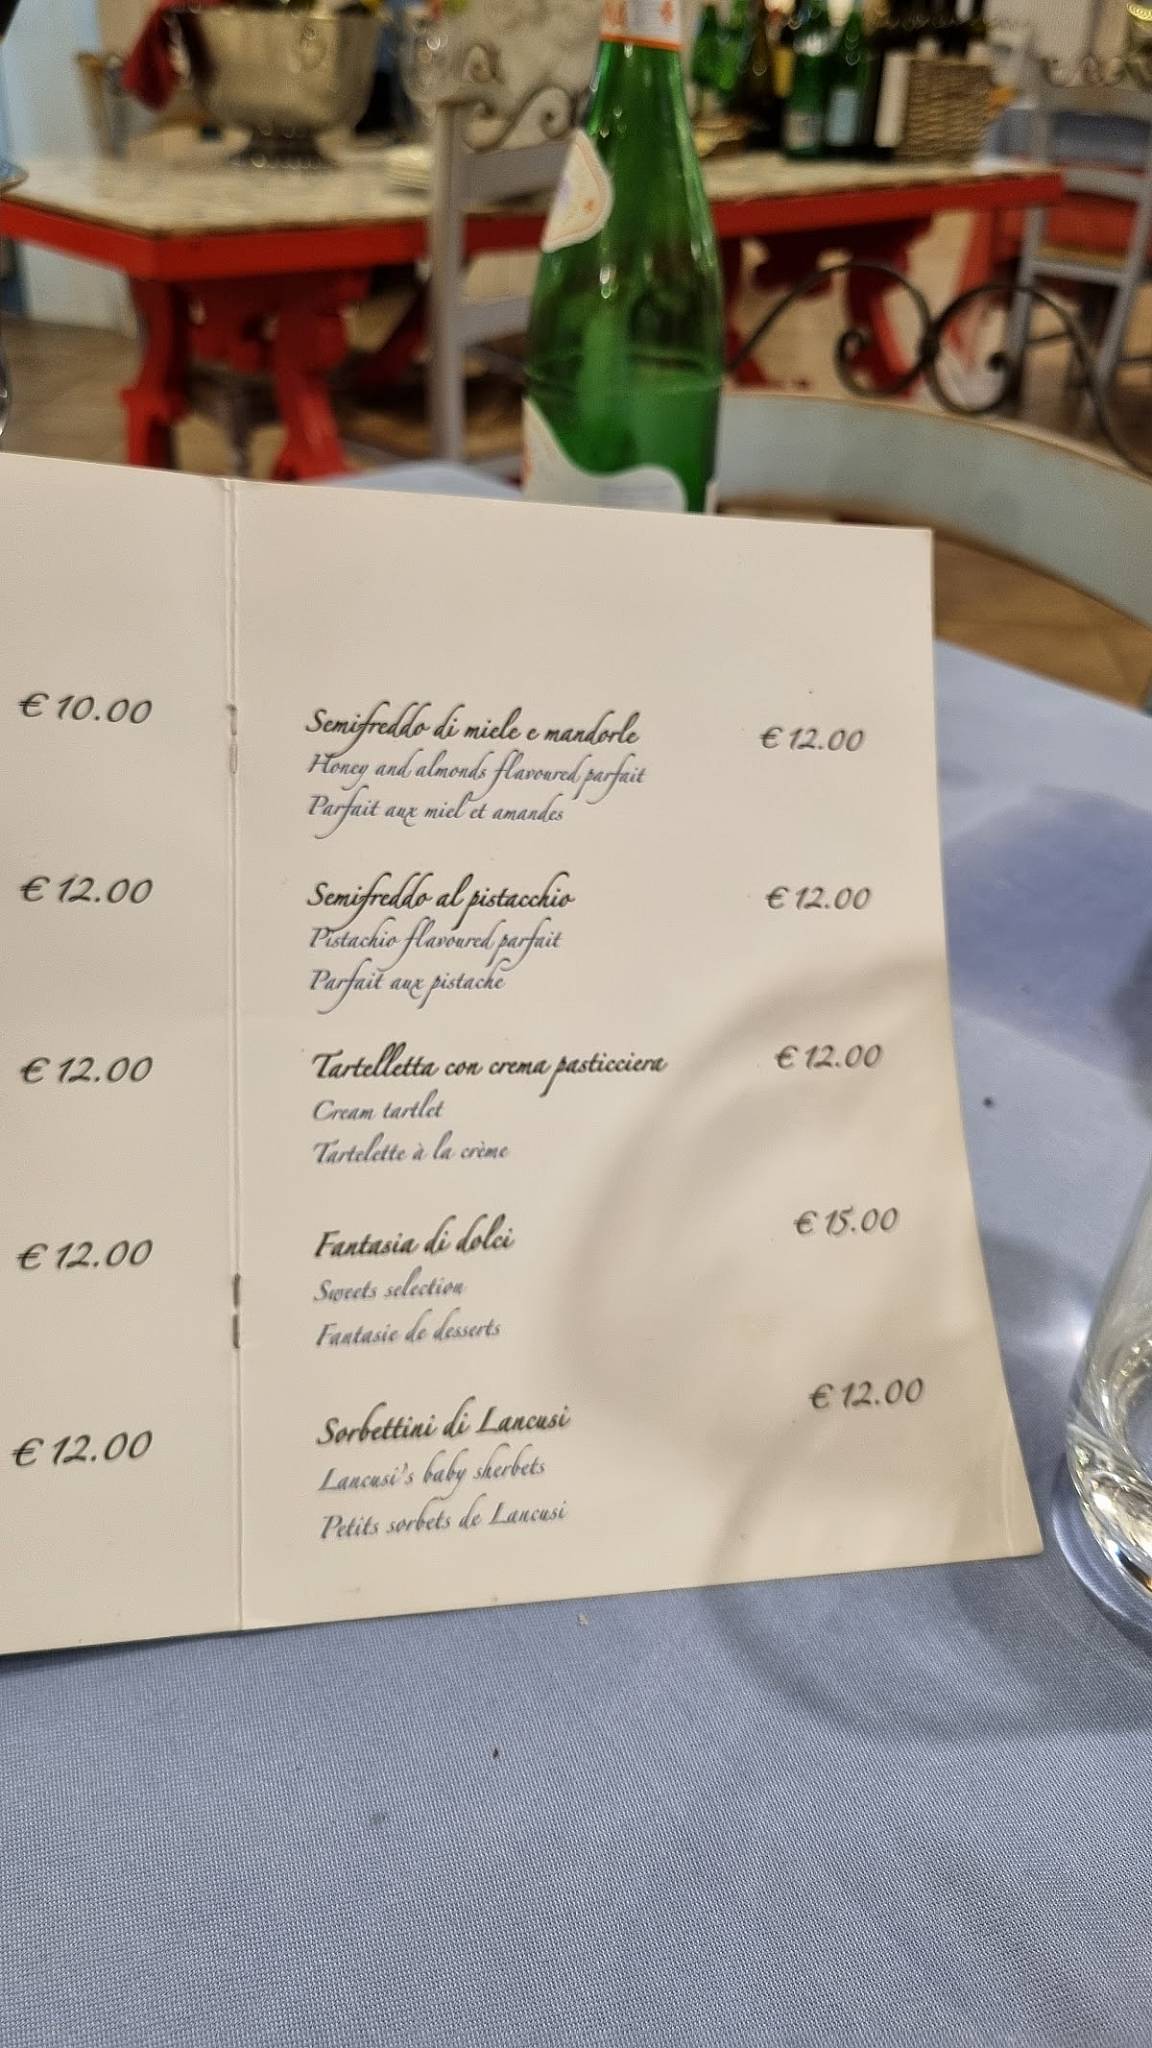 € 10.00
€ 12.00
€ 12.00
€ 12.00
€ 12.00
Semifreddo di miele e mandorle € 12.00
Honey and almonds flavoured parfait
Parfait aux miel et amandes
Semifreddo al pistacchio € 12.00
Pistachio flavoured parfait
Parfait aux pistache
Tartelletta con crema pasticciera € 12.00
Cream tartlet
Tartelette à la crème
Fantasia di dolci € 15.00
Sweets selection
Fantasie de desserts
Sorbettini di Lancusi € 12.00
Lancusi's baby sherbets
Petits sorbets de Lancusi